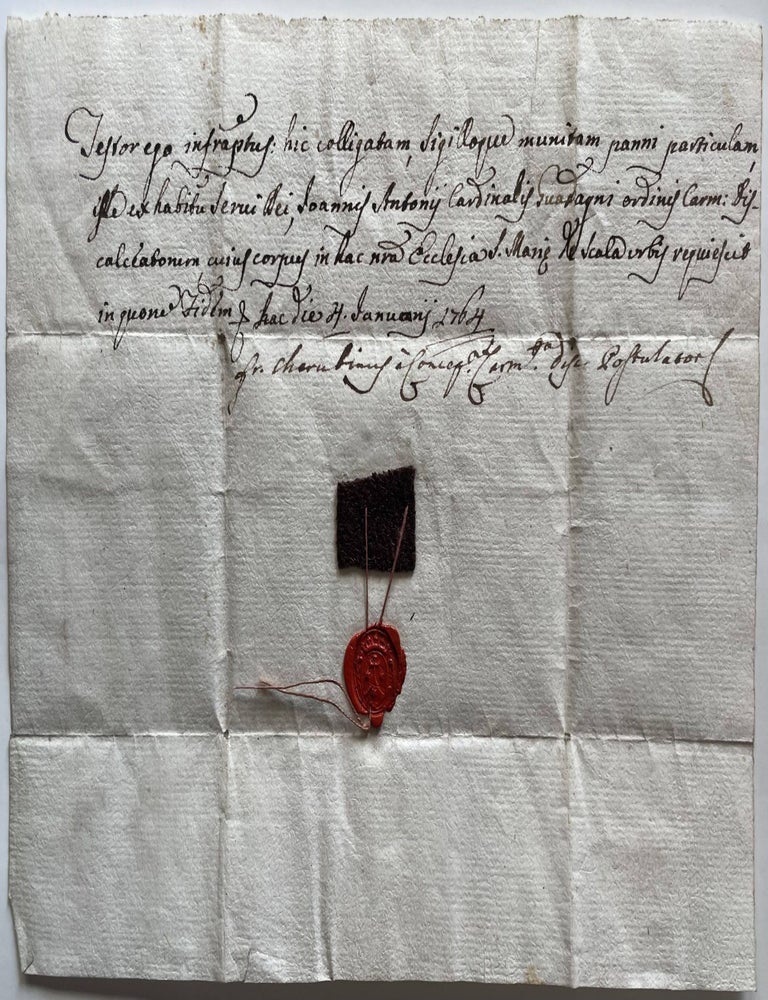 Testor ego infraptus: hic colligatam, sigilloque munitam panni particulam,
esse ex habitu Servi Dei, Joannis Antonij Cardinalis Guadagni ordinis Carm: Dis-
calceatorum, cuius corpus in hac nrã Ecclesia S. Mariȩ de Scala urbis requiescit
in quore Fidem hac die 4. Januarij 1764
fr. Cherubinus à Concepne. Carm.ta disc. Postulator